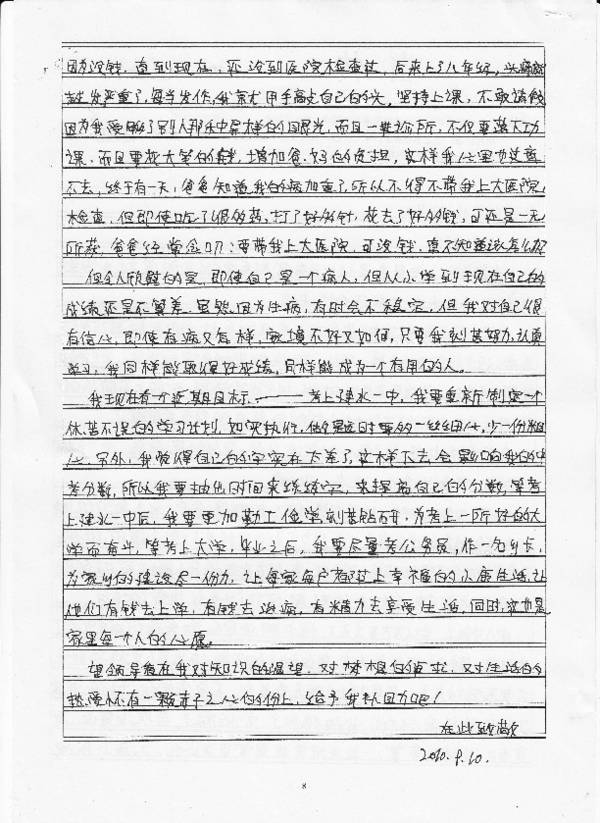 因为没钱，直到现在，还没到医院检查过，后来上了八年级，头痛
越发严重了，每当发作，我就用手高走自己的头，坚持上课，不敢请假
因为我受够了别人那种异样的目光，而且一进诊所，不但要落下功
课，而且要花大笔的钱，增加爸、妈的负担，这样我心里边过意
不去，终于有一天，爸爸知道我的病加重了，所以不得不带我上大医院
检查，但即使吃了很多药，打了好多针，花去了好多钱，可还是一无
所获，爸爸经常念叨：要带我上大医院，可没钱，真不知道该怎么办
但令人欣慰的是，即使自己是一个病人，但从小学到现在自己的
成绩还是不算差，虽然因为生病，有时会不稳定，但我对自己很
有信心，即使有病又怎样，家境不好又如何，只要我刻苦努力，认真
学习，我同样能取得好成绩，同样能成为一个有用的人。
我现在有个近期目标————考上建水一中，我要重新制定一个
休苦不误的学习计划，如实执行，做题时要多一丝细心，少一份粗
心，另外，我觉得自己的字实在太差了，这样下去会影响我的中
考分数，所以我要抽他时间来练练字，来提高自己的分数，等考
上建水一中后，我要更加勤工俭学刻苦钻研，为考上一所好的大
学而奋斗，等考上大学，毕业之后，我要尽量考公务员，作一名乡长，
为家乡的建设尽一份力，让每家每户都过上幸福的小康生活，让
他们有钱去上学，有钱去治病，有精力去享受生活，同时，这也是
家里每个人的心愿。
望领导能在我对知识的渴望，对梦想的追求，对生活的
热爱怀有一颗赤子之心的份上，给予我帮助吧！
在此致敬
2010.9.10.
8